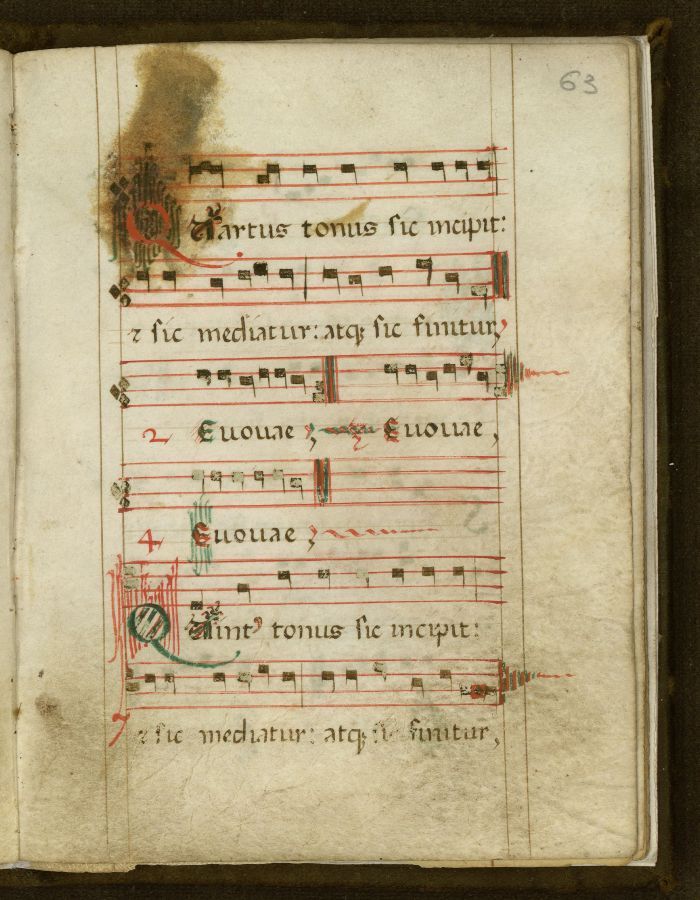 63
Quartus tonus sic incipit:
⁊ sic mediatur: atqꝫ sic finitur,
2 Euouae ; Euouae ,
4 Euouae ;
Quint᾿ tonus sic incipit:
⁊ sic mediatur: atqꝫ sic finitur,